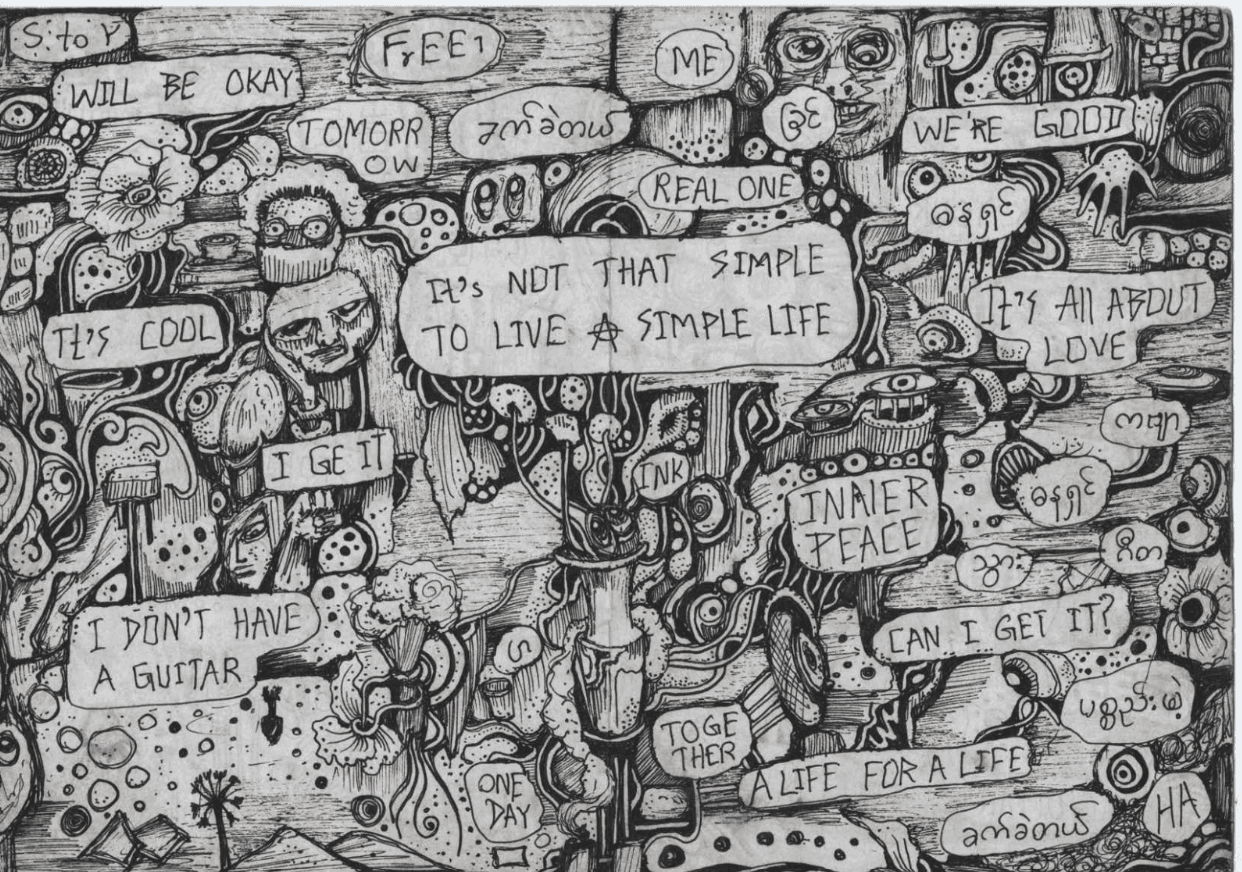 S. to Y
WILL BE OKAY
FrEE1
ME
TOMORR
OW
ခက်ခဲတယ်
ခြင်
WE'RE GOOD
REAL ONE
ဓနရှင်
It's NOT THAT SIMPLE
TO LIVE A SIMPLE LIFE
It's COOL
It's All ABOUT
LOVE
ကဗျာ
I GET IT
INK
ဓနရှင်
INNER
PEACE
ဂီတ
သွား
I DON'T HAVE
A GUITAR
CAN I GET IT?
S
ပစ္စည်းမဲ့
TOGE
THER
A LIFE FOR A LIFE
ONE
DAY
HA
ခက်ခဲတယ်